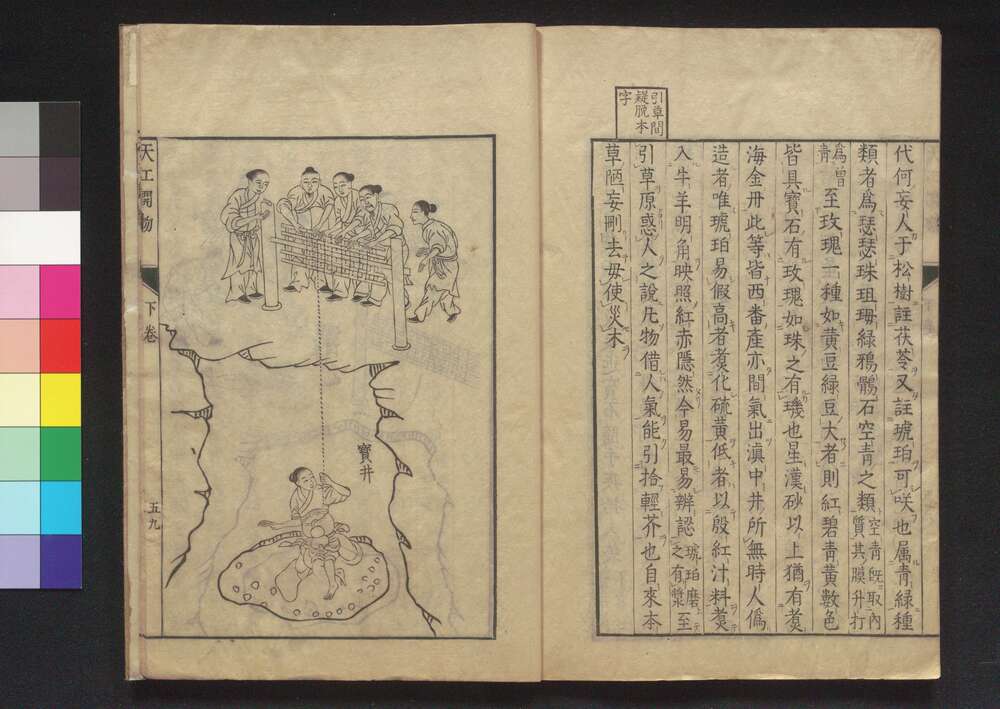 引草間
疑脫本
字
代何妄人于松樹註茯苓又註琥珀可咲也属青綠種
類者爲瑟瑟珠珇珻綠鴉鶻石空青之類空青既取內質其膜升打
爲曾青至玫瑰一種如黃豆綠豆大者則紅碧青黃數色
皆具寶石有玫瑰如珠之有璣也星漢砂以上猶有煑
海金丹此等皆西番產亦間氣出滇中井所無時人僞
造者唯琥珀易假高者煑化硫黃低者以殷紅汁料煑
入牛羊明角映照紅赤隱然今易最易辨認琥珀磨之有漿至
引草原惑人之說凡物借人氣能引拾輕芥也自來本
草陋妄刪去毋使災木
天工開物
下卷
五九
寶井